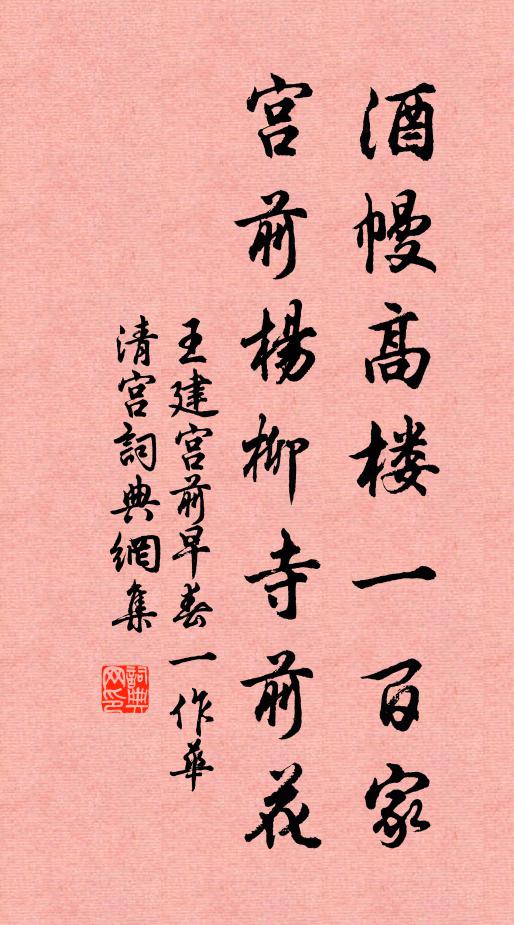 酒幔高楼一百家
宫前楊柳寺前花
王建宫前早春一作華
清宫詞典網集
詞典
网印